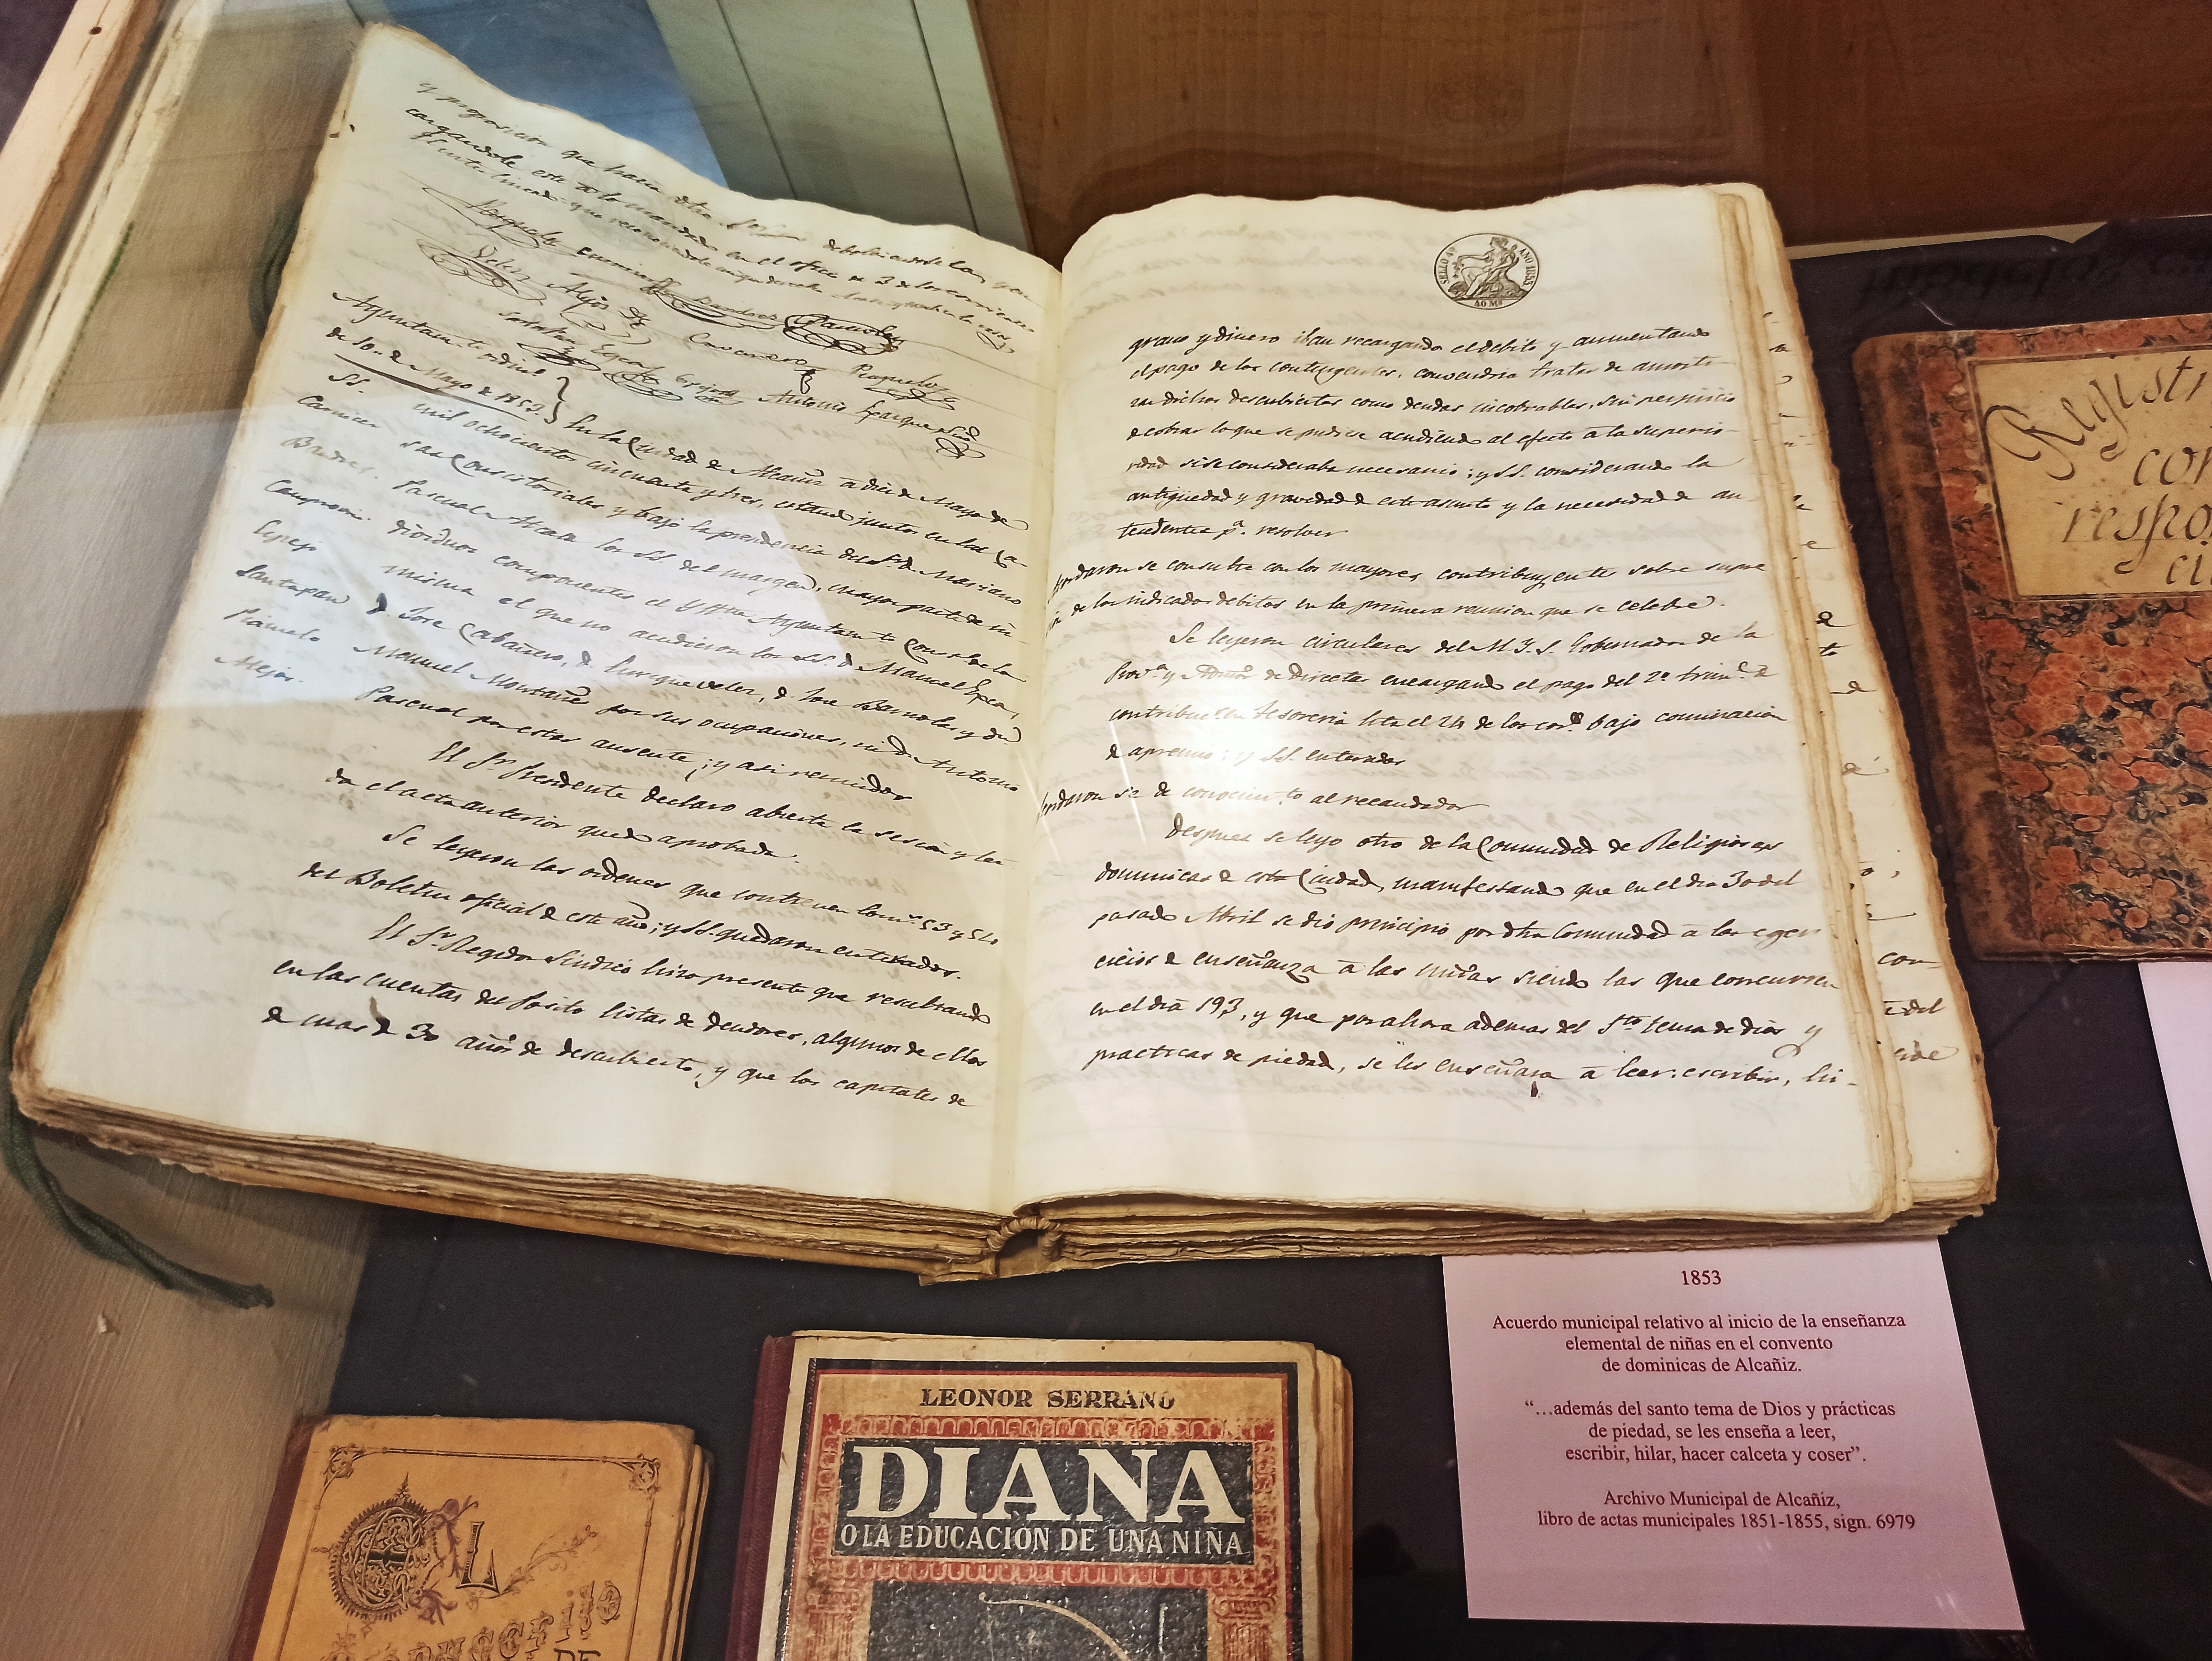 y proposicion que hacia dtho
cargandole este a lo mandado en el oficio de 3 de los corrientes
Felix Alejos
Antonio
Ayuntam.to ordin.o
de 10 de Mayo de 1853.
SS.
Carnicer
Camprovin.
Santapau
Piñuelo
Alejos.
En la Ciudad de Alcañiz a diez de Mayo de
mil ochocientos cincuenta y tres, estando juntos en las Ca-
sas Consistoriales y bajo la presidencia del Sr. D. Mariano
Pascual Alcala los SS. del margen, mayor parte de in-
dividuos componentes el Yltre Ayuntam.to Const.l de la
misma el que no acudieron los SS. D. Manuel
D. Jose Cabañero, D. Enrique Velez, D. Jose Barnolas y D.
Manuel Montañes por sus ocupaciones, ni Dn Antonio
Pascual por estar ausente; y asi reunidos
El Sr. Presidente declaro abierta la sesion y lei-
da el acta anterior quedo aprobada.
Se leyeron las ordenes que contienen los nu.s 53 y 54
del Boletin oficial de este año; y SS. quedaron enterados.
El Sr. Regidor Sindico hizo presente que resultando
en las cuentas del Posito listas de deudores, algunos de ellos
de mas de 30 años de descubierto, y que los capitales de
SELLO 4º AÑO 1853
40 Ms
grano y dinero iban recargando el debito y aumentando
el pago de los contingentes, convendria tratar de amorti-
zar dichos descubiertos como deudas incobrables, sin perjuicio
de cobrar lo que se pudiese acudiendo al efecto a la superio-
ridad si se consideraba necesario; y SS. considerando la
antigüedad y gravedad de este asunto y la necesidad de an-
tecedentes p.a resolver
Acordaron se consulte con los mayores contribuyentes sobre
de los indicados debitos en la primera reunion que se celebre.
Se leyeron circulares del M. Y. S. Gobernador de la
Prov.a y Admor de Directas encargando el pago del 2º trim.e de
contribuc.on en Tesoreria hta el 24 de los cor.tes bajo conminacion
de apremio; y SS. enterados
Acordaron se de conocim.to al recaudador
Despues se leyo otro de la Comunidad de Religiosas
dominicas de esta Ciudad, manifestando que en el dia 30 del
pasado Abril se dio principio por dtha Comunidad a los eger-
cicios de enseñanza a las niñas siendo las que concurren
en el dia 193, y que por ahora ademas del Sto tema de dios y
practicas de piedad, se les enseñara a leer, escribir, hi-
con-
del
Regist
cor
respo
ci
1853
Acuerdo municipal relativo al inicio de la enseñanza
elemental de niñas en el convento
de dominicas de Alcañiz.
“…además del santo tema de Dios y prácticas
de piedad, se les enseña a leer,
escribir, hilar, hacer calceta y coser”.
Archivo Municipal de Alcañiz,
libro de actas municipales 1851-1855, sign. 6979
LEONOR SERRANO
DIANA
O LA EDUCACIÓN DE UNA NIÑA
DE